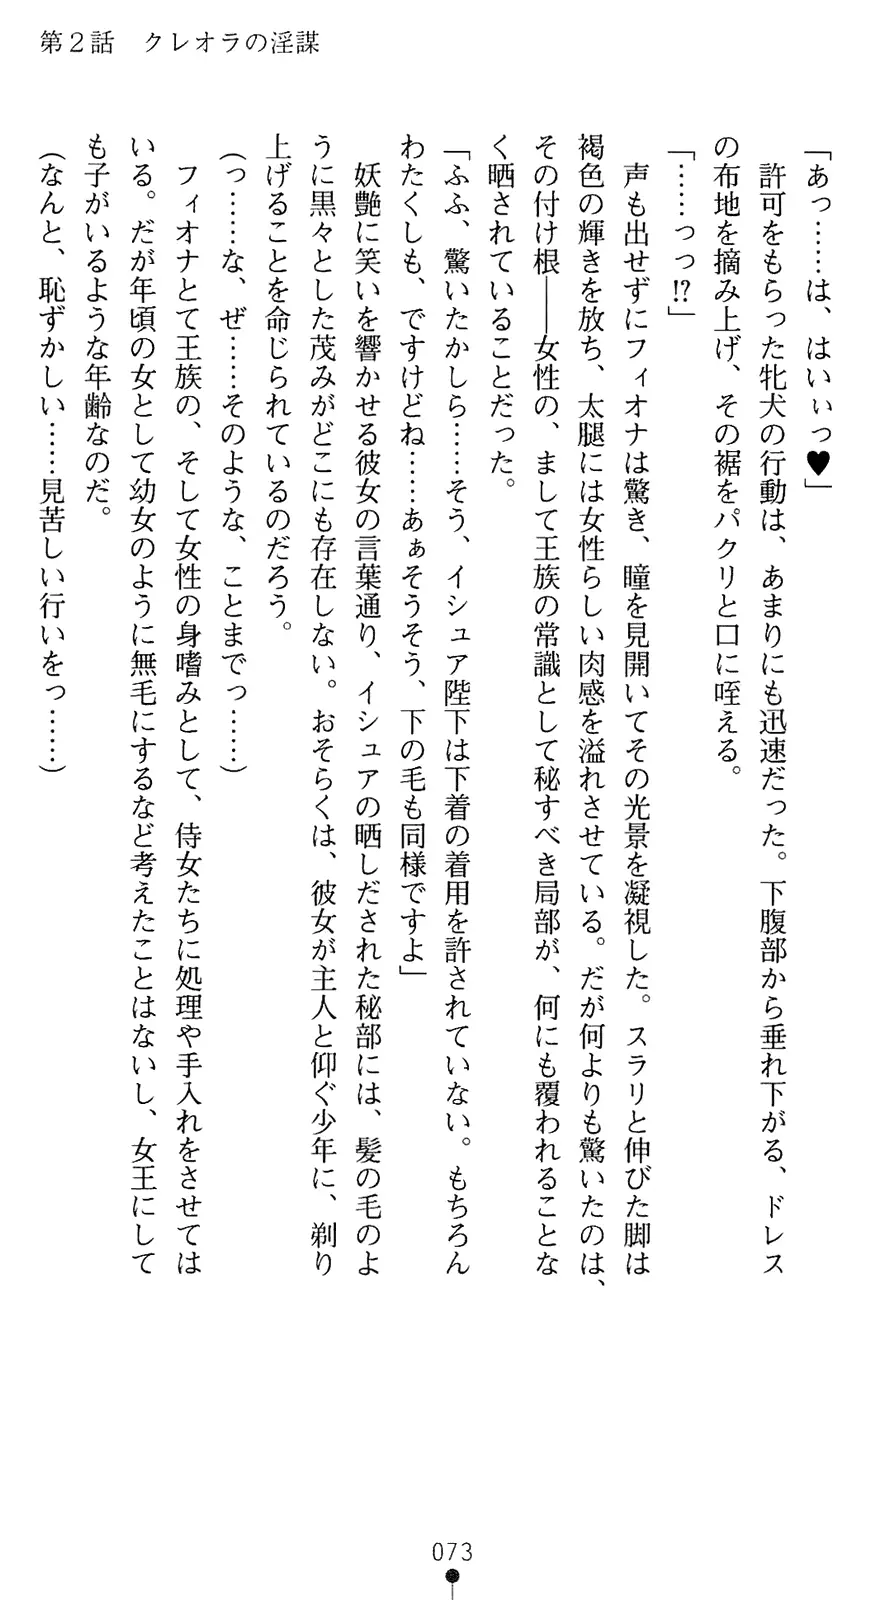 第2話　クレオラの淫謀
「あっ……は、はいぃっ♥」
　許可をもらった牝犬の行動は、あまりにも迅速だった。下腹部から垂れ下がる、ドレス
の布地を摘み上げ、その裾をパクリと口に咥える。
「……っっ!?」
　声も出せずにフィオナは驚き、瞳を見開いてその光景を凝視した。スラリと伸びた脚は
褐色の輝きを放ち、太腿には女性らしい肉感を溢れさせている。だが何よりも驚いたのは、
その付け根――女性の、まして王族の常識として秘すべき局部が、何にも覆われることな
く晒されていることだった。
「ふふ、驚いたかしら……そう、イシュア陛下は下着の着用を許されていない。もちろん
わたくしも、ですけどね……あぁそうそう、下の毛も同様ですよ」
　妖艶に笑いを響かせる彼女の言葉通り、イシュアの晒しだされた秘部には、髪の毛のよ
うに黒々とした茂みがどこにも存在しない。おそらくは、彼女が主人と仰ぐ少年に、剃り
上げることを命じられているのだろう。
（っ……な、ぜ……そのような、ことまでっ……）
　フィオナとて王族の、そして女性の身嗜みとして、侍女たちに処理や手入れをさせては
いる。だが年頃の女として幼女のように無毛にするなど考えたことはないし、女王にして
も子がいるような年齢なのだ。
（なんと、恥ずかしい……見苦しい行いをっ……）
073